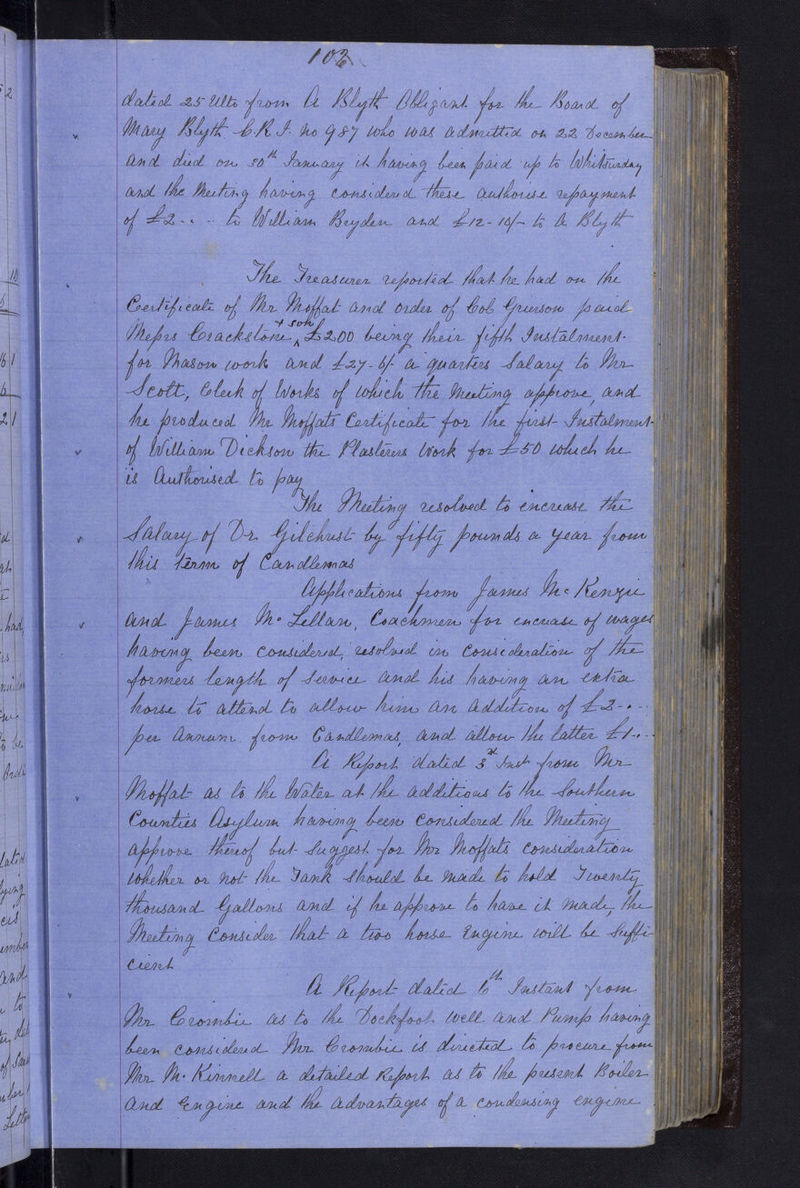 102
dated 25 Ulto from A Blyth Obligant for the Board of
Mary Blyth C.R.I. No 987 who was admitted on 22 December
and died on 30th January it having been paid up to Whitsunday
and the Meeting having considered these authorise repayment
of £2 - . - . to William Bryden and £12 - 10/- to A Blyth
The Treasurer reported that he had on the
Certificate of Mr Moffat and order of Col Grierson paid
Messrs Crackstone + son £200 being their fifth Instalment
for Mason work and £27 - 6/- a quarters Salary to Mr
Scott, Clerk of Works of which the Meeting approve, and
he produced Mr Moffats Certificate for the first Instalment
of William Dickson the Plasterers Work for £50 which he
is Authorised to pay
The Meeting resolved to encrease the
Salary of Dr. Gilchrist by fifty pounds a year from
this term of Candlemas
Applications from James McKenzie
and James McLellan, Coachmen for encrease of wages
having been considered, resolved in consideration of the
formers length of Service and his having an extra
horse to attend to allow him an addition of £2 - . - .
per Annum from Candlemas, and allow the latter £1 - . - .
A Report dated 3d Inst from Mr
Moffat as to the Water at the additions to the Southern
Counties Asylum having been considered the Meeting
approve thereof but suggest for Mr Moffats consideration
whether or not the Tank should be made to hold Twenty
thousand Gallons and if he approve to have it made, the
Meeting Consider that a two horse Engine will be Suffi
cient
A Report dated 6th Instant from
Mr Crombie as to the Dockfoot Well and Pump having
been considered Mr Crombie is directed to procure from
Mr McKinnell a detailed Report as to the present Boiler
and Engine and the advantages of a condensing engine